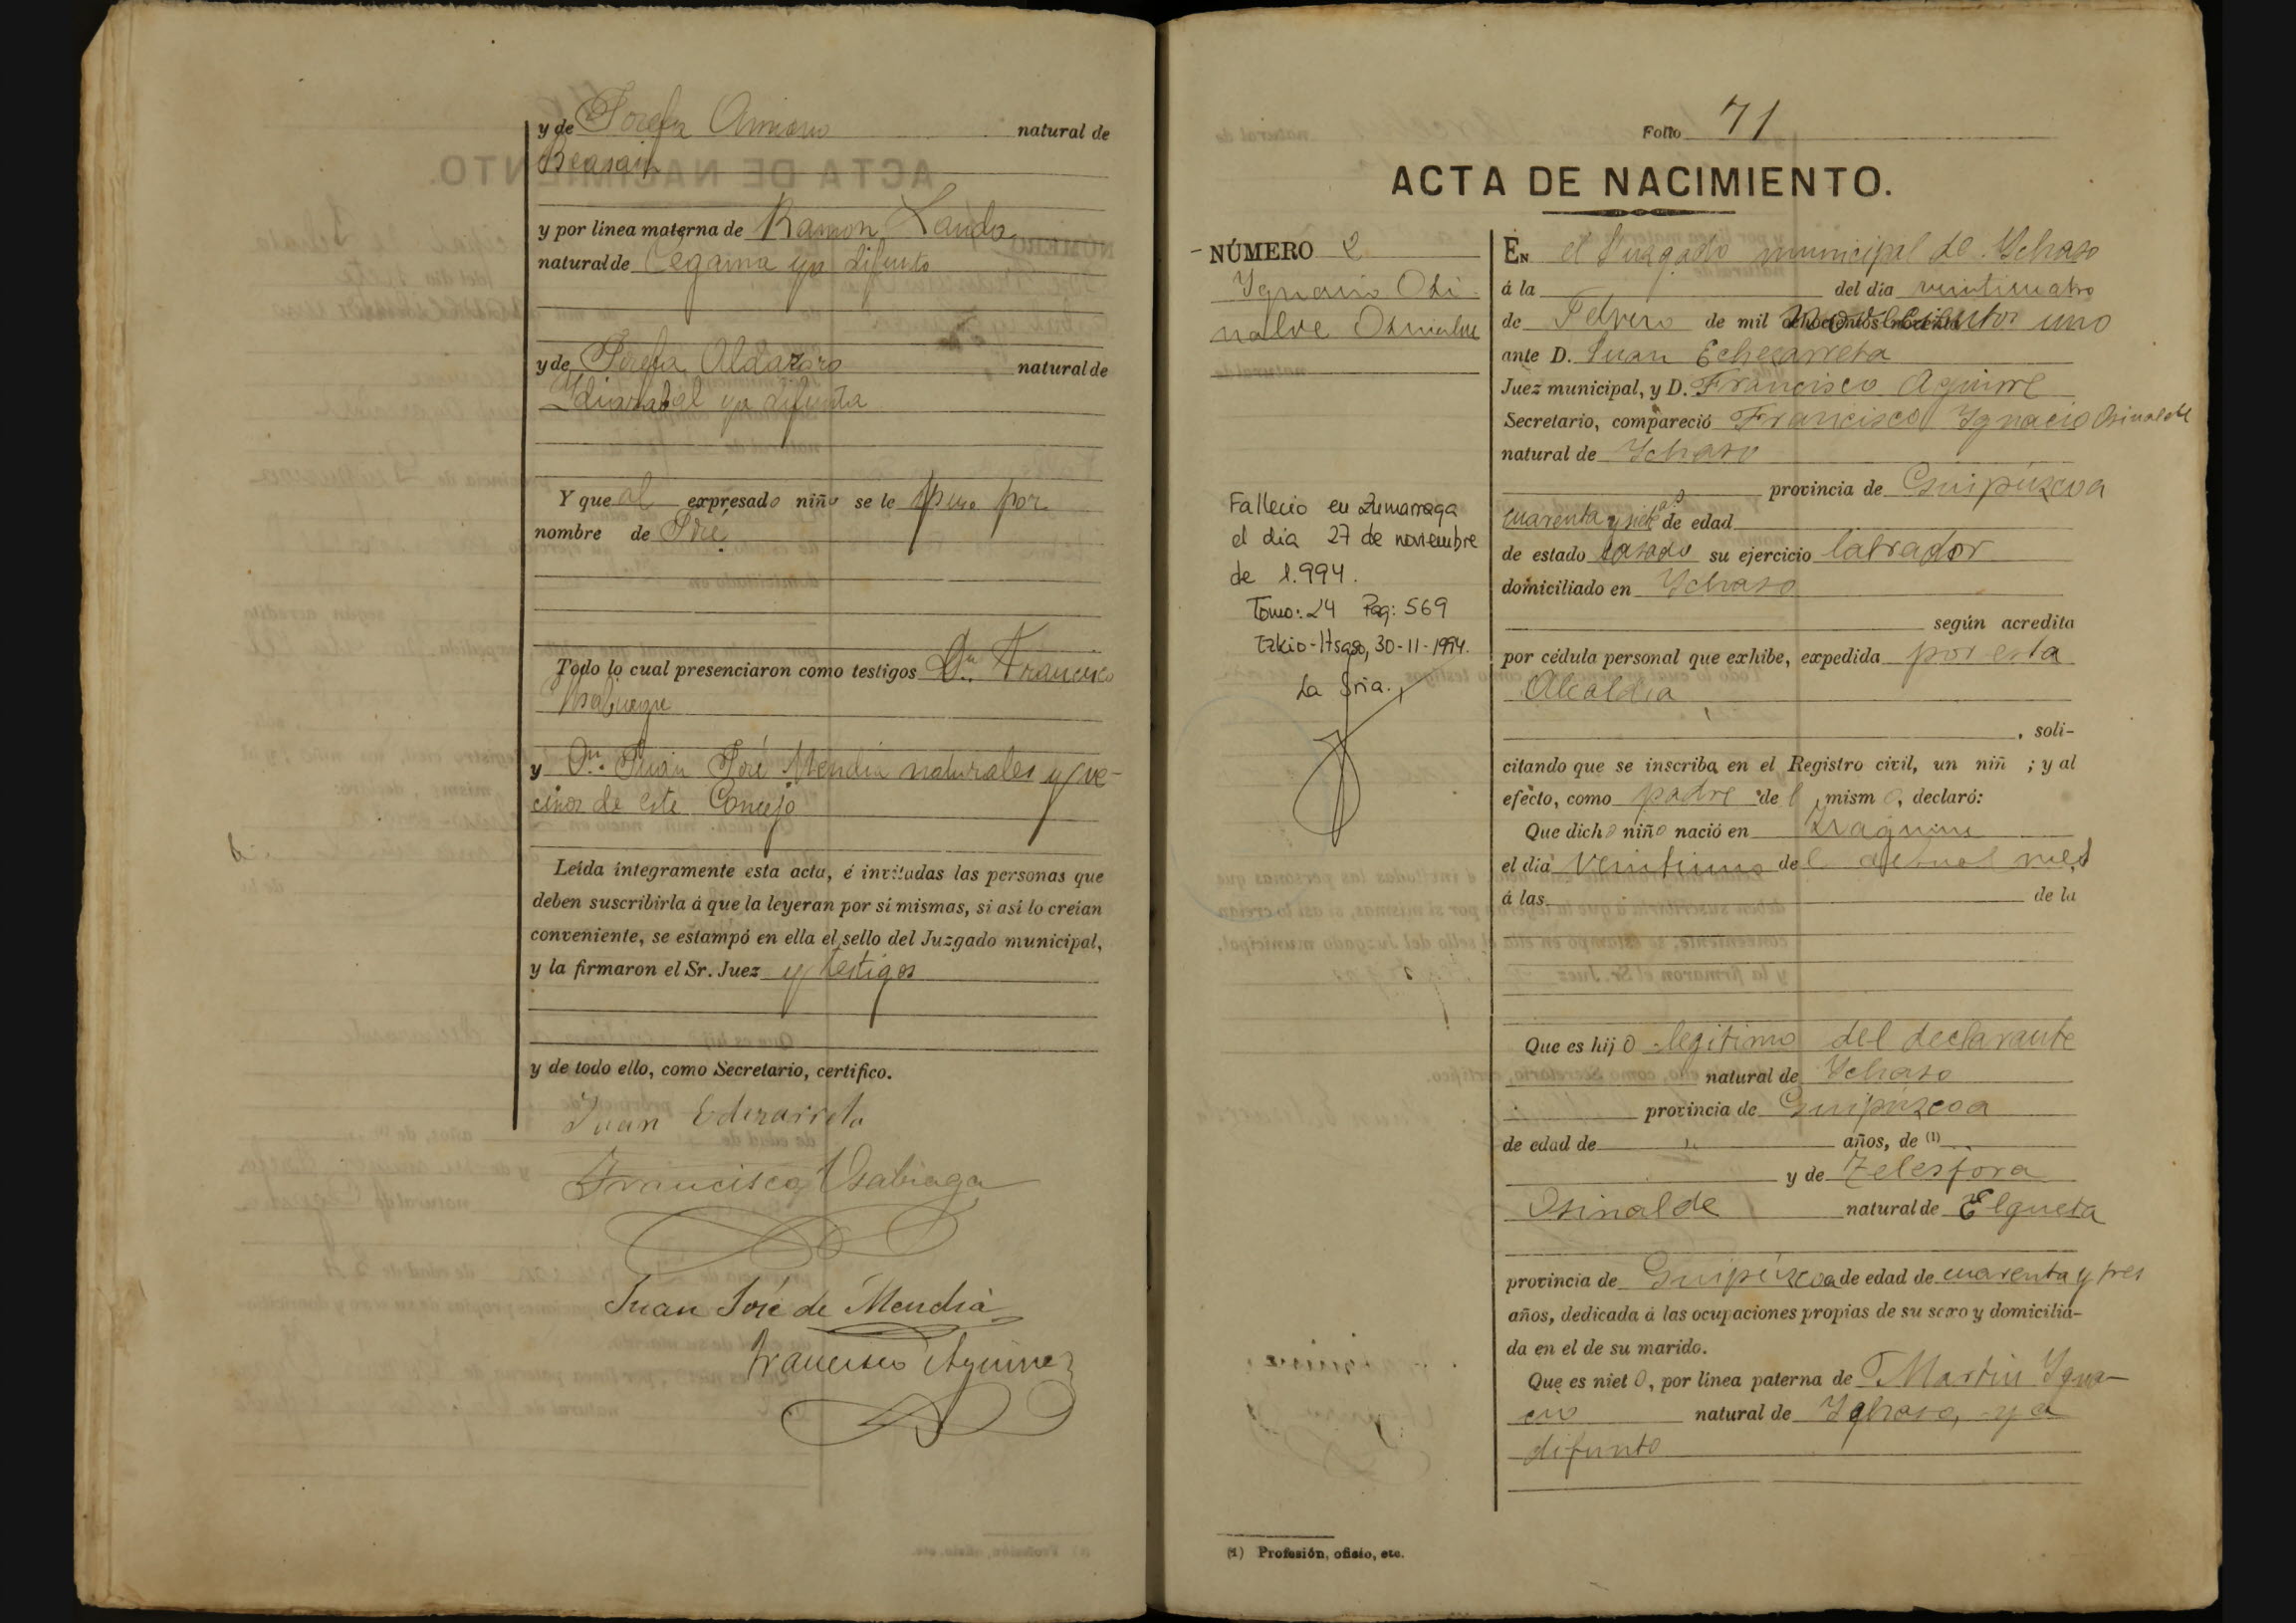 y de Josefa Amiano natural de
Beasain
y por línea materna de Ramon Lauda
natural de Cegama ya difunto
y de Josefa Aldazoro natural de
Ydiazabal ya difunta
Y que al expresado niño se le puso por
nombre de José
Todo lo cual presenciaron como testigos Dn. Francisco
y Dn. Juan José Mendia naturales y ve-
cinos de este Concejo
Leída íntegramente esta acta, é invitadas las personas que
deben suscribirla á que la leyeran por sí mismas, si así lo creían
conveniente, se estampó en ella el sello del Juzgado municipal,
y la firmaron el Sr. Juez y testigos
y de todo ello, como Secretario, certifico.
Juan Echezarreta
Francisco Usabiaga
Juan José de Mendia
Francisco Aguirre
Folio 71
ACTA DE NACIMIENTO.
NÚMERO 2
Ygnacio Osi-
nalde Osinalde
Fallecio en Zumarraga
el dia 27 de noviembre
de 1.994.
Tomo: 24 Pag: 569
Ezkio-Itsaso, 30-11-1994.
La Sria.,
En el Juzgado municipal de Ychaso
á la del día veinticuatro
de Febrero de mil novecientos uno
ante D. Juan Echezarreta
Juez municipal, y D. Francisco Aguirre
Secretario, compareció Francisco Ygnacio Osinalde
natural de Ychaso
provincia de Guipúzcoa
cuarenta y siete as de edad
de estado casado su ejercicio labrador
domiciliado en Ychaso
según acredita
por cédula personal que exhibe, expedida por esta
Alcaldia
, soli-
citando que se inscriba en el Registro civil, un niñ ; y al
efecto, como padre de l mism o, declaró:
Que dicho niño nació en
el día veintiuno del actual mes
á las de la
Que es hijo legitimo del declarante
natural de Ychaso
provincia de Guipúzcoa
de edad de años, de (1)
y de Telesfora
Osinalde natural de Elgueta
provincia de Guipúzcoa de edad de cuarenta y tres
años, dedicada á las ocupaciones propias de su sexo y domicilia-
da en el de su marido.
Que es nieto, por línea paterna de Martin Ygna-
cio natural de Ychaso, ya
difunto
(1) Profesión, oficio, etc.